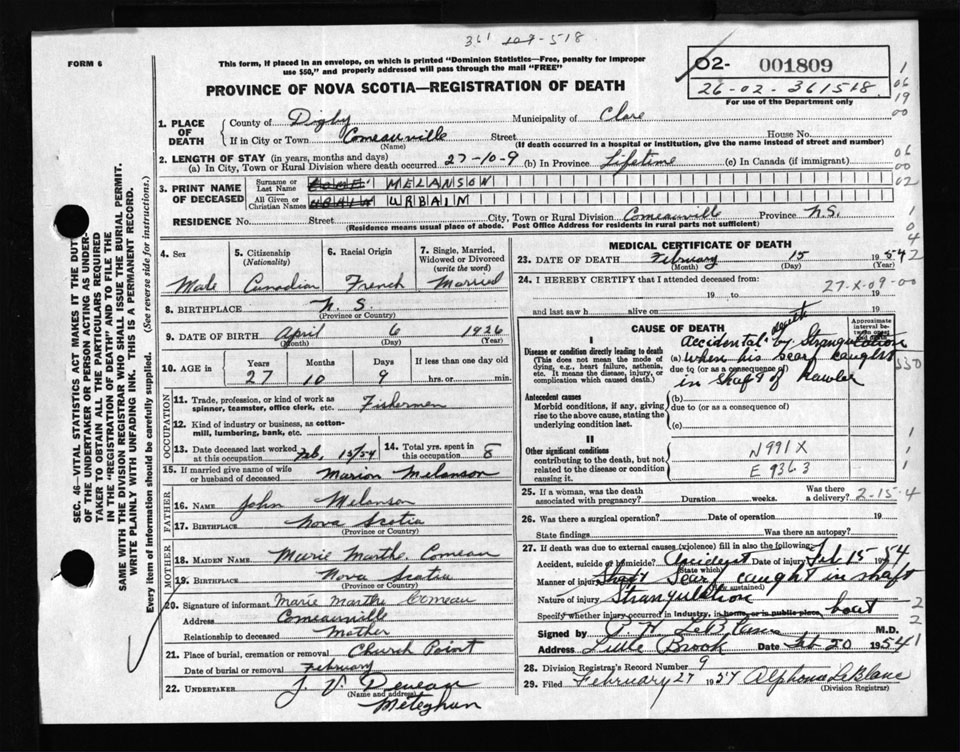 361 107-518
FORM 6
This form, if placed in an envelope, on which is printed "Dominion Statistics—Free, penalty for improper
use $50," and properly addressed will pass through the mail "FREE"
02- 001809
26-02-361518.
For use of the Department only
PROVINCE OF NOVA SCOTIA—REGISTRATION OF DEATH
1. PLACE OF DEATH
County of Digby Municipality of Clare
If in City or Town Comeauville Street House No.
(Name) (If death occurred in a hospital or institution, give the name instead of street and number)
2. LENGTH OF STAY (in years, months and days)
(a) In City, Town or Rural Division where death occurred 27-10-9 (b) In Province Lifetime (c) In Canada (if immigrant)
3. PRINT NAME OF DECEASED
Surname or Last Name MELANSON
All Given or Christian Names URBAIN
RESIDENCE No. Street City, Town or Rural Division Comeauville Province N.S.
(Residence means usual place of abode. Post Office Address for residents in rural parts not sufficient)
4. Sex
Male
5. Citizenship
(Nationality)
Canadian
6. Racial Origin
French
7. Single, Married,
Widowed or Divorced
(write the word)
Married
8. BIRTHPLACE N.S.
(Province or Country)
9. DATE OF BIRTH April 6 1926
(Month) (Day) (Year)
10. AGE in Years Months Days If less than one day old
27 10 9 hrs. or min.
OCCUPATION
11. Trade, profession or kind of work as
spinner, teamster, office clerk, etc. Fishermen
12. Kind of industry or business, as cotton-
mill, lumbering, bank, etc.
13. Date deceased last worked
at this occupation Feb. 15/54
14. Total yrs. spent in
this occupation 8
15. If married give name of wife
or husband of deceased Marion Melanson
FATHER
16. NAME John Melanson
17. BIRTHPLACE Nova Scotia
(Province or Country)
MOTHER
18. MAIDEN NAME Marie Marthe. Comeau
19. BIRTHPLACE Nova Scotia
(Province or Country)
20. Signature of informant Marie Marthe Comeau
Address Comeauville
Relationship to deceased Mother
21. Place of burial, cremation or removal Church Point
Date of burial or removal February
22. UNDERTAKER J. V. Deveau
(Name and address)
Meteghan
MEDICAL CERTIFICATE OF DEATH
23. DATE OF DEATH February 15 1954
(Month) (Day) (Year)
24. I HEREBY CERTIFY that I attended deceased from:
27-X-09-00
19 to 19
and last saw h alive on 19
CAUSE OF DEATH
Approximate
interval be-
tween onset
and death
I
Disease or condition directly leading to death
(This does not mean the mode of
dying, e.g., heart failure, asthenia,
etc. It means the disease, injury, or
complication which caused death.)
Accidental death by Strangulation
(a) when his scarf caught
due to (or as a consequence of)
in shaft of Hawler
Antecedent causes
Morbid conditions, if any, giving
rise to the above cause, stating the
underlying condition last.
(b)
due to (or as a consequence of)
(c)
II
Other significant conditions
contributing to the death, but not
related to the disease or condition
causing it.
N991X
E936.3
25. If a woman, was the death
associated with pregnancy? Duration weeks. Was there
a delivery? 2-15-4
26. Was there a surgical operation? Date of operation 19
State findings Was there an autopsy?
27. If death was due to external causes (violence) fill in also the following:
Accident, suicide or homicide? Accident Date of injury Feb 15 1954
(State which)
Manner of injury Shaft Scarf caught in shaft
(How sustained)
Nature of injury Strangulation
Specify whether injury occurred in industry, in home, or in public place, boat
Signed by M.D.
Address Little Brook Date Feb 20 1954
28. Division Registrar's Record Number 9
29. Filed February 27 1954 Alphonse LeBlanc
(Division Registrar)
SEC. 46—VITAL STATISTICS ACT MAKES IT THE DUTY
OF THE UNDERTAKER OR PERSON ACTING AS UNDER-
TAKER TO OBTAIN ALL THE PARTICULARS REQUIRED
IN THE "REGISTRATION OF DEATH" AND TO FILE THE
SAME WITH THE DIVISION REGISTRAR WHO SHALL ISSUE THE BURIAL PERMIT.
WRITE PLAINLY WITH UNFADING INK. THIS IS A PERMANENT RECORD.
Every item of information should be carefully supplied. (See reverse side for instructions.)